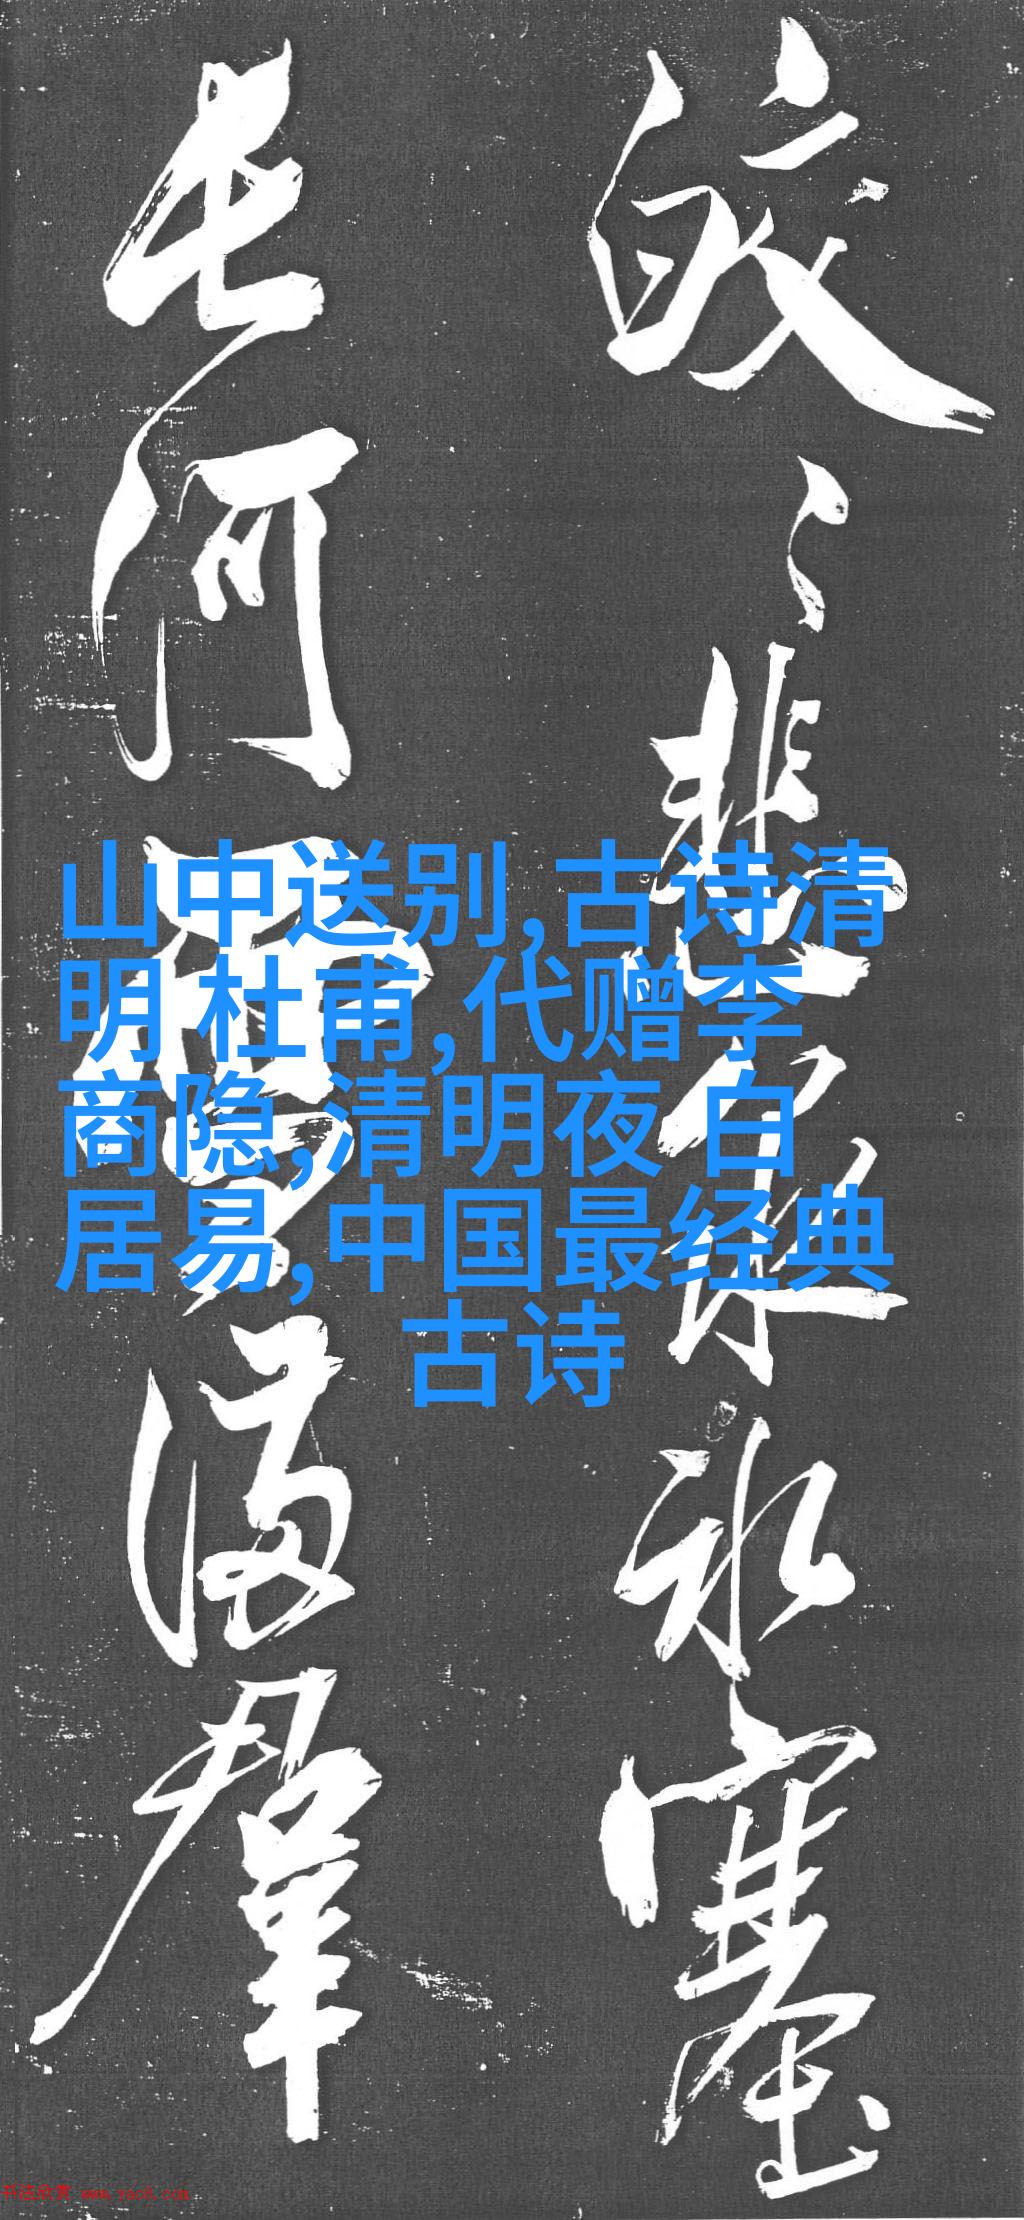 皎〻悲冰塞
長河雪滿群
山中送别,古诗清
明 杜甫,代赠李
商隐,清明夜 白
居易,中国最经典
古诗
书法欣赏 www.yac8.com